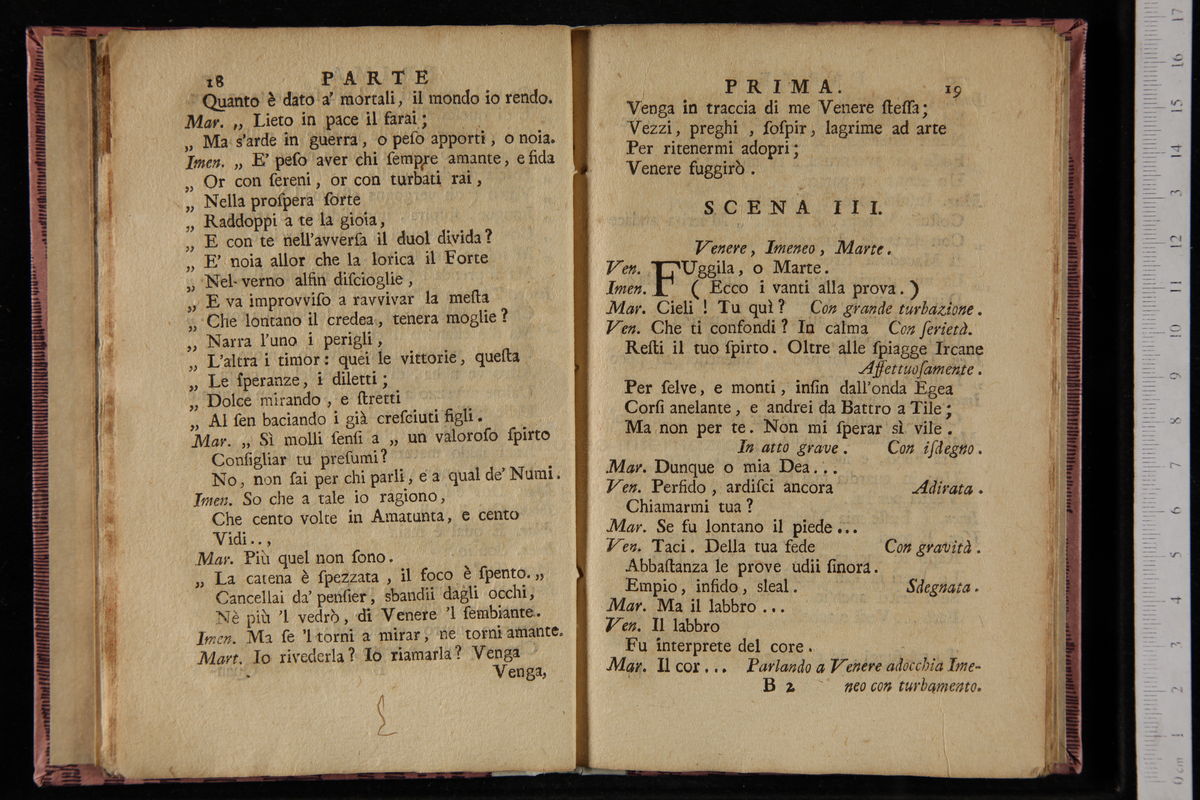 18 PARTE
Quanto è dato a' mortali, il mondo io rendo.
Mar. „ Lieto in pace il farai;
„ Ma s'arde in guerra, o peſo apporti, o noia.
Imen. „ E' peſo aver chi ſempre amante, e fida
„ Or con ſereni, or con turbati rai,
„ Nella proſpera ſorte
„ Raddoppi a te la gioia,
„ E con te nell'avverſa il duol divida?
„ E' noia allor che la lorica il Forte
„ Nel-verno alfin diſcioglie,
„ E va improvviſo a ravvivar la meſta
„ Che lontano il credea, tenera moglie?
„ Narra l'uno i perigli,
„ L'altra i timor: quei le vittorie, queſta
„ Le ſperanze, i diletti;
„ Dolce mirando, e ſtretti
„ Al ſen baciando i già creſciuti figli.
Mar. „ Sì molli ſenſi a „ un valoroſo ſpirto
Conſigliar tu preſumi?
No, non ſai per chi parli, e a qual de' Numi.
Imen. So che a tale io ragiono,
Che cento volte in Amatunta, e cento
Vidi..,
Mar. Più quel non ſono.
„ La catena è ſpezzata, il foco è ſpento. „
Cancellai da' penſier, sbandii dagli occhi,
Nè più 'l vedrò, di Venere 'l ſembiante.
Imen. Ma ſe 'l torni a mirar, ne torni amante.
Mart. Io rivederla? Io riamarla? Venga
Venga,
PRIMA. 19
Venga in traccia di me Venere ſteſſa;
Vezzi, preghi, ſoſpir, lagrime ad arte
Per ritenermi adopri;
Venere fuggirò.
SCENA III.
Venere, Imeneo, Marte.
Ven. FUggila, o Marte.
Imen. ( Ecco i vanti alla prova. )
Mar. Cieli! Tu quì? Con grande turbazione.
Ven. Che ti confondi? In calma Con ſerietà.
Reſti il tuo ſpirto. Oltre alle ſpiagge Ircane
Affettuoſamente.
Per ſelve, e monti, inſin dall'onda Egea
Corſi anelante, e andrei da Battro a Tile;
Ma non per te. Non mi ſperar sì vile.
In atto grave. Con iſdegno.
Mar. Dunque o mia Dea...
Ven. Perfido, ardiſci ancora Adirata.
Chiamarmi tua?
Mar. Se fu lontano il piede...
Ven. Taci. Della tua fede Con gravità.
Abbaſtanza le prove udii ſinora.
Empio, infido, sleal. Sdegnata.
Mar. Ma il labbro...
Ven. Il labbro
Fu interprete del core.
Mar. Il cor... Parlando a Venere adocchia Ime-
B 2 neo con turbamento.